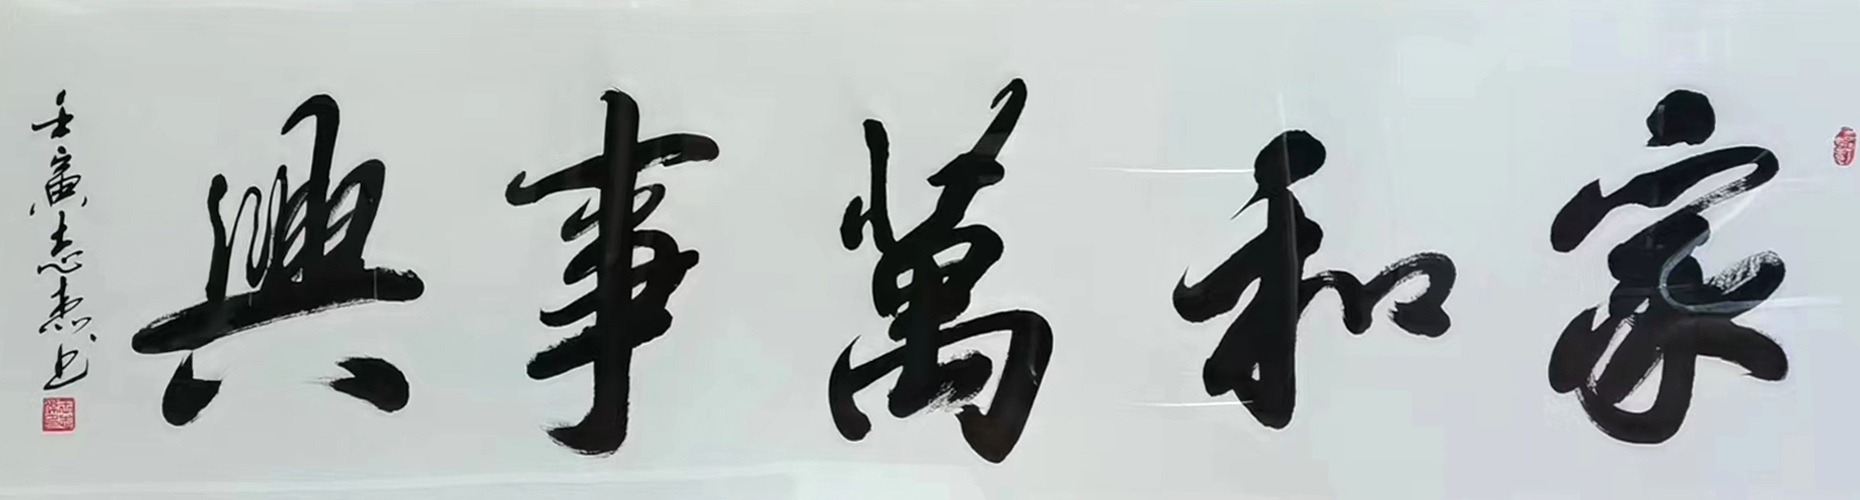 家和萬事興
壬寅志杰书